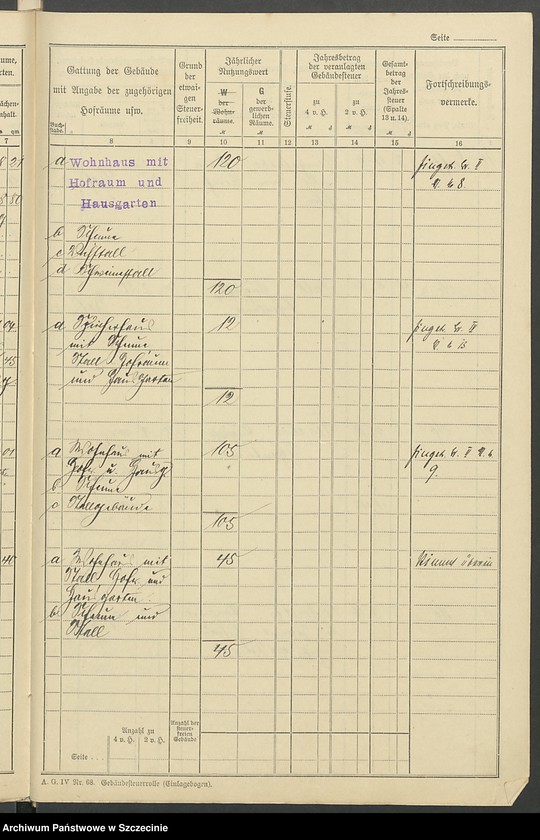 Seite
Gattung der Gebäude
mit Angabe der zugehörigen
Hofräume usw.
Buch-
stabe.
Grund
der
etwai-
gen
Steuer-
freiheit.
Jährlicher
Nutzungswert
W
der
Wohn-
räume.
G
der
gewerb-
lichen
Räume.
Steuerstufe.
Jahresbetrag
der veranlagten
Gebäudesteuer
zu
4 v. H.
zu
2 v. H.
Gesamt-
betrag
der
Jahres-
steuer
(Spalte
13 u. 14).
Fortschreibungs-
vermerke.
7 8 9 10 11 12 13 14 15 16
a Wohnhaus mit 120
Hofraum und
Hausgarten
b Scheune
c
d Schweinestall
120
a 12
mit Scheune
Stall Hofraum
und Hausgarten
12
a Wohnhaus mit 105
Hofr. u. Hausg.
9.
b Scheune
c Stallgebäude
105
a Wohnhaus mit 45
Stall Hofr. und
Hausgarten
b Scheune und
Stall
45
Anzahl zu
4 v. H. 2 v. H.
Anzahl der
steuer-
freien
Gebäude
Seite . . .
A. G. IV Nr. 68. Gebäudesteuerrolle (Einlagebogen).
Archiwum Państwowe w Szczecinie